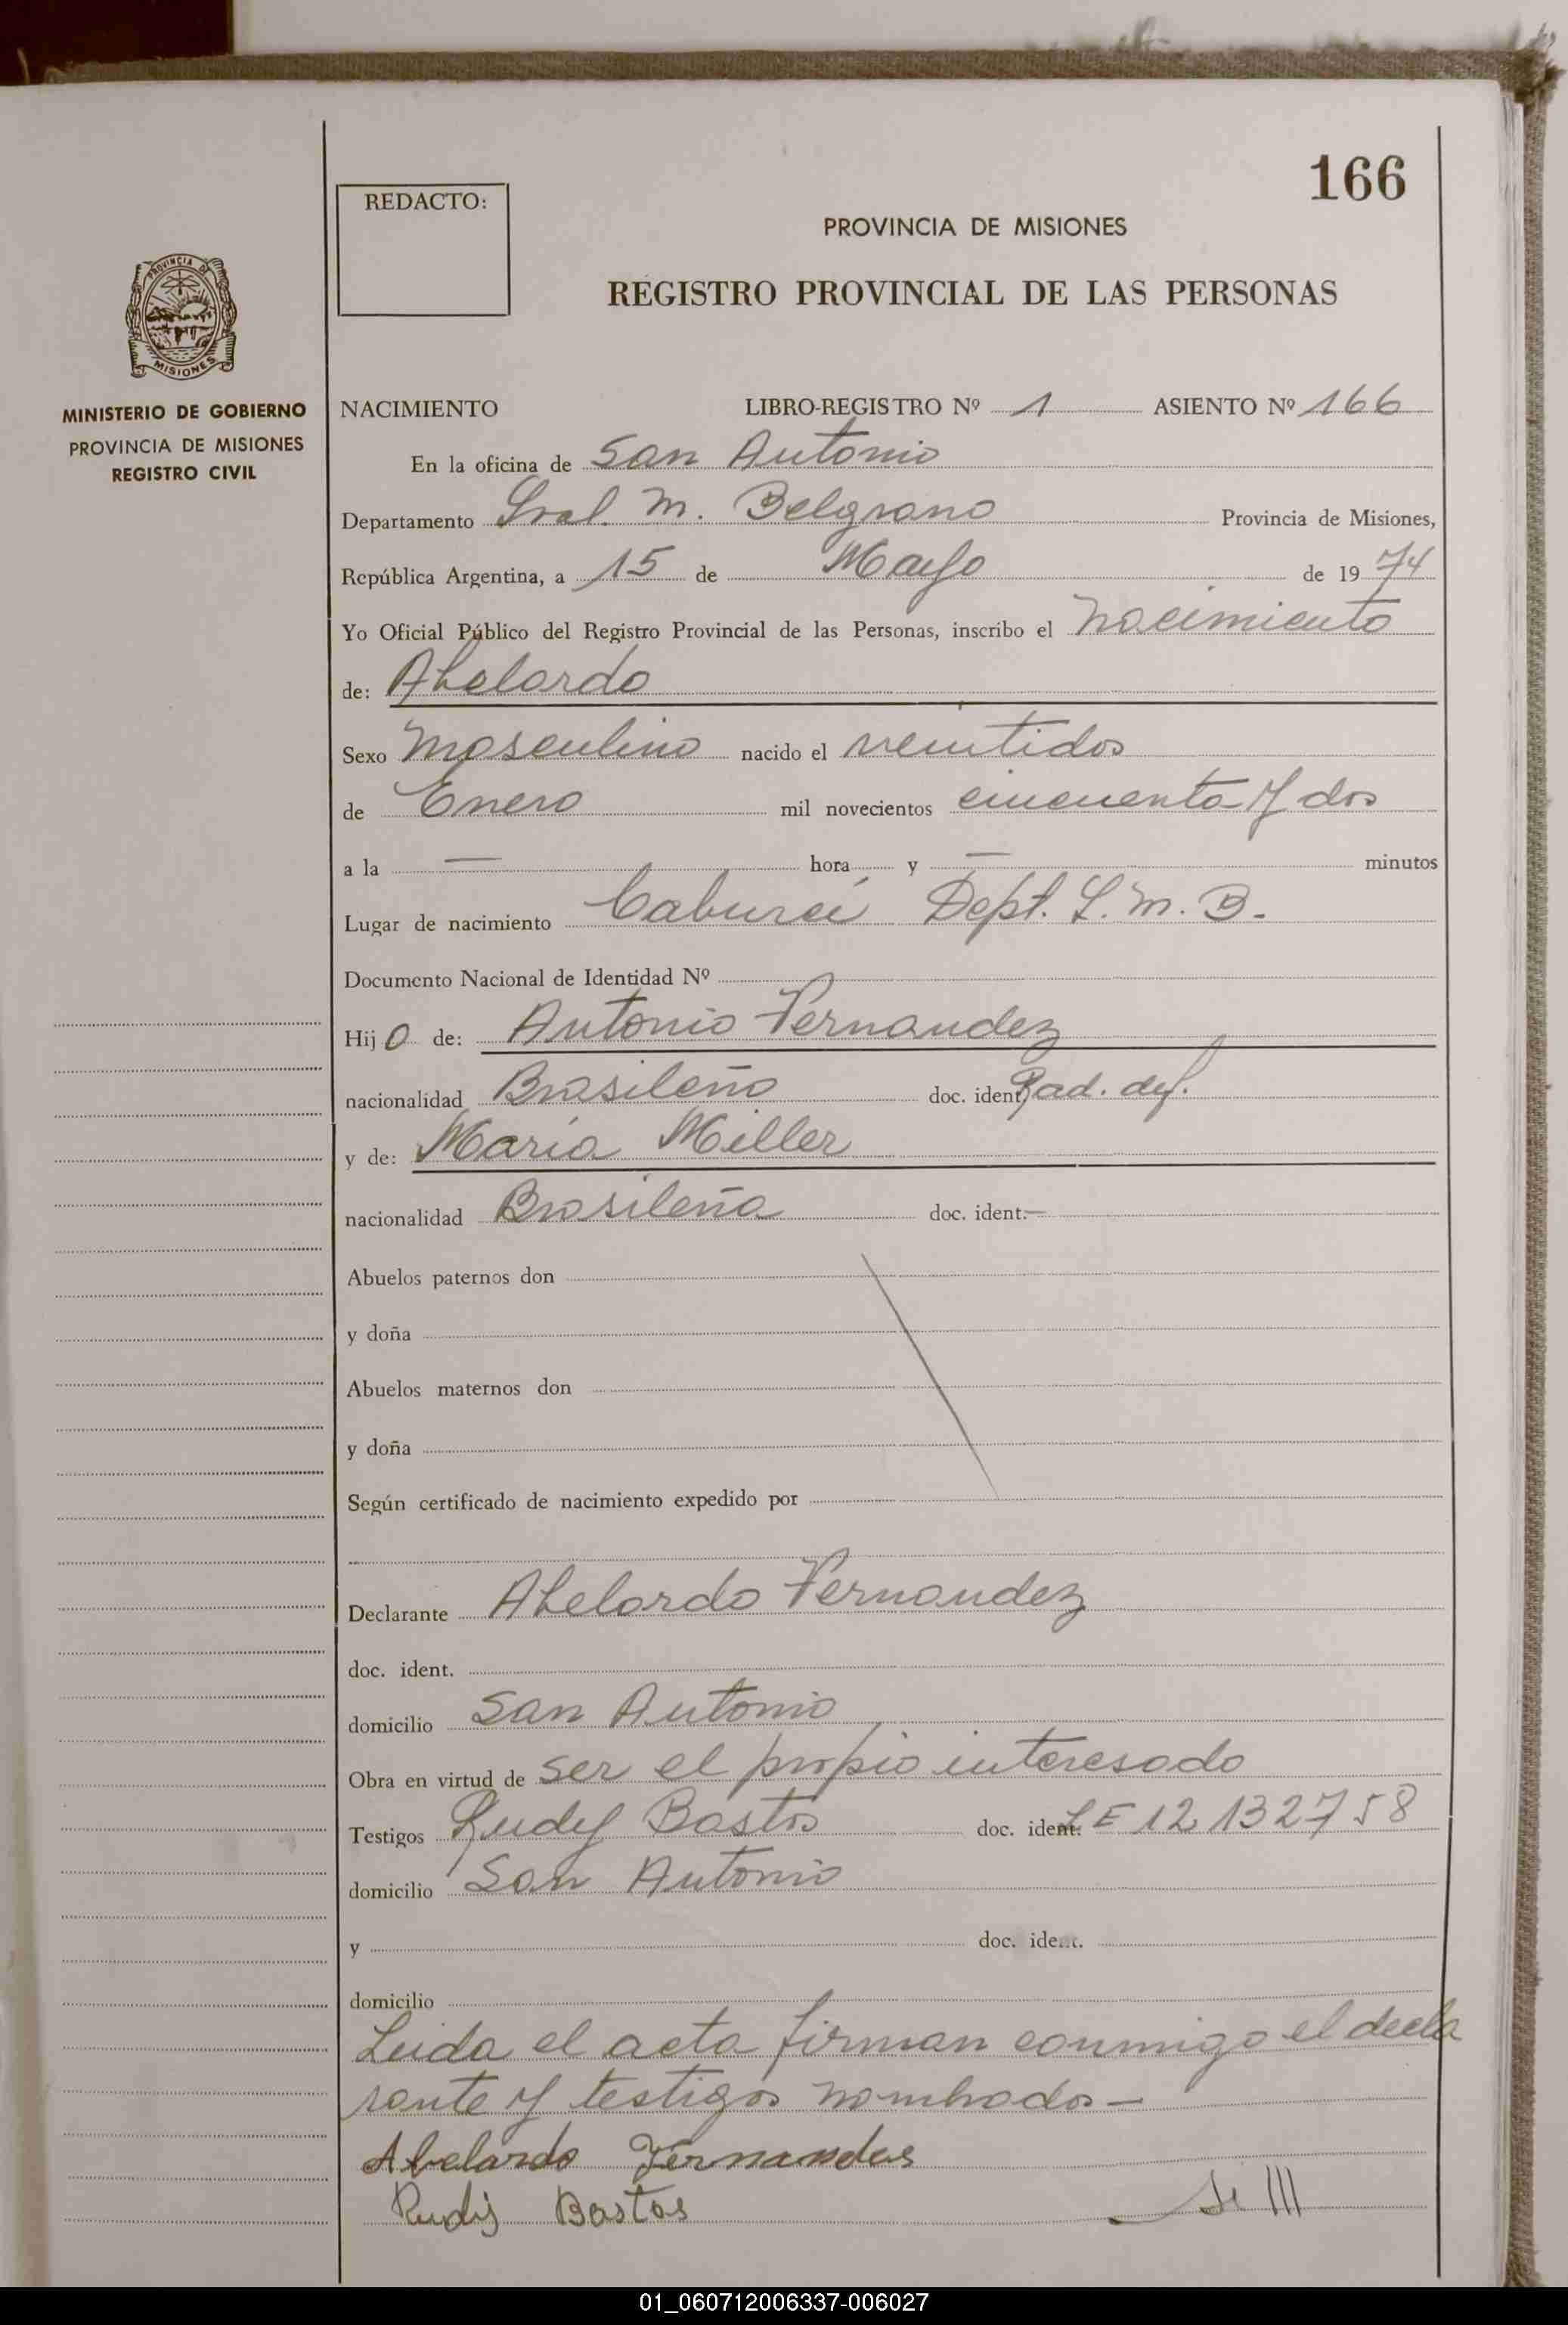 166
REDACTO:
PROVINCIA DE MISIONES
REGISTRO PROVINCIAL DE LAS PERSONAS
PROVINCIA DE
MISIONES
MINISTERIO DE GOBIERNO
PROVINCIA DE MISIONES
REGISTRO CIVIL
NACIMIENTO LIBRO-REGISTRO Nº 1 ASIENTO Nº 166
En la oficina de San Antonio
Departamento Gral. M. Belgrano Provincia de Misiones,
República Argentina, a 15 de Mayo de 19 74
Yo Oficial Público del Registro Provincial de las Personas, inscribo el nacimiento
de: Abelardo
Sexo masculino nacido el veintidos
de Enero mil novecientos cincuenta y dos
a la — hora y — minutos
Lugar de nacimiento Caburei Dept. G. M. B.
Documento Nacional de Identidad Nº
Hij o de: Antonio Fernandez
nacionalidad Brasileño doc. ident.
y de: Maria Miller
nacionalidad Brasileña doc. ident. —
Abuelos paternos don
y doña
Abuelos maternos don
y doña
Según certificado de nacimiento expedido por
Declarante Abelardo Fernandez
doc. ident.
domicilio San Antonio
Obra en virtud de ser el propio interesado
Testigos Rudy Bastos doc. ident. LE 12 132758
domicilio San Antonio
y doc. ident.
domicilio
Leida el acta firman conmigo el decla
rante y testigos nombrados —
Abelardo Fernandes
Rudis Bastos
01_060712006337-006027